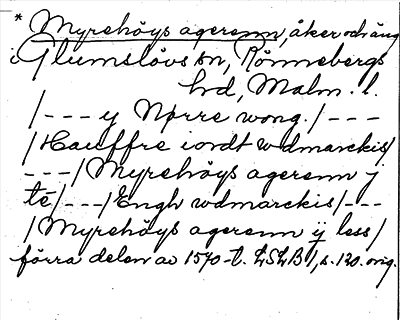 * Myrehöys agerenn, åker och äng
i Glumslövs sn, Rönnebergs
hd, Malm. l.
/--- y Nørre wong./---
/Hauffre iordt wdmarckis/
---/Myrehöys agerenn j
té/---/Engh wdmarckis/---
/Myrehöys agerenn ÿ less/
förra delen av 1570-t. LSLB 1, s. 120. orig.